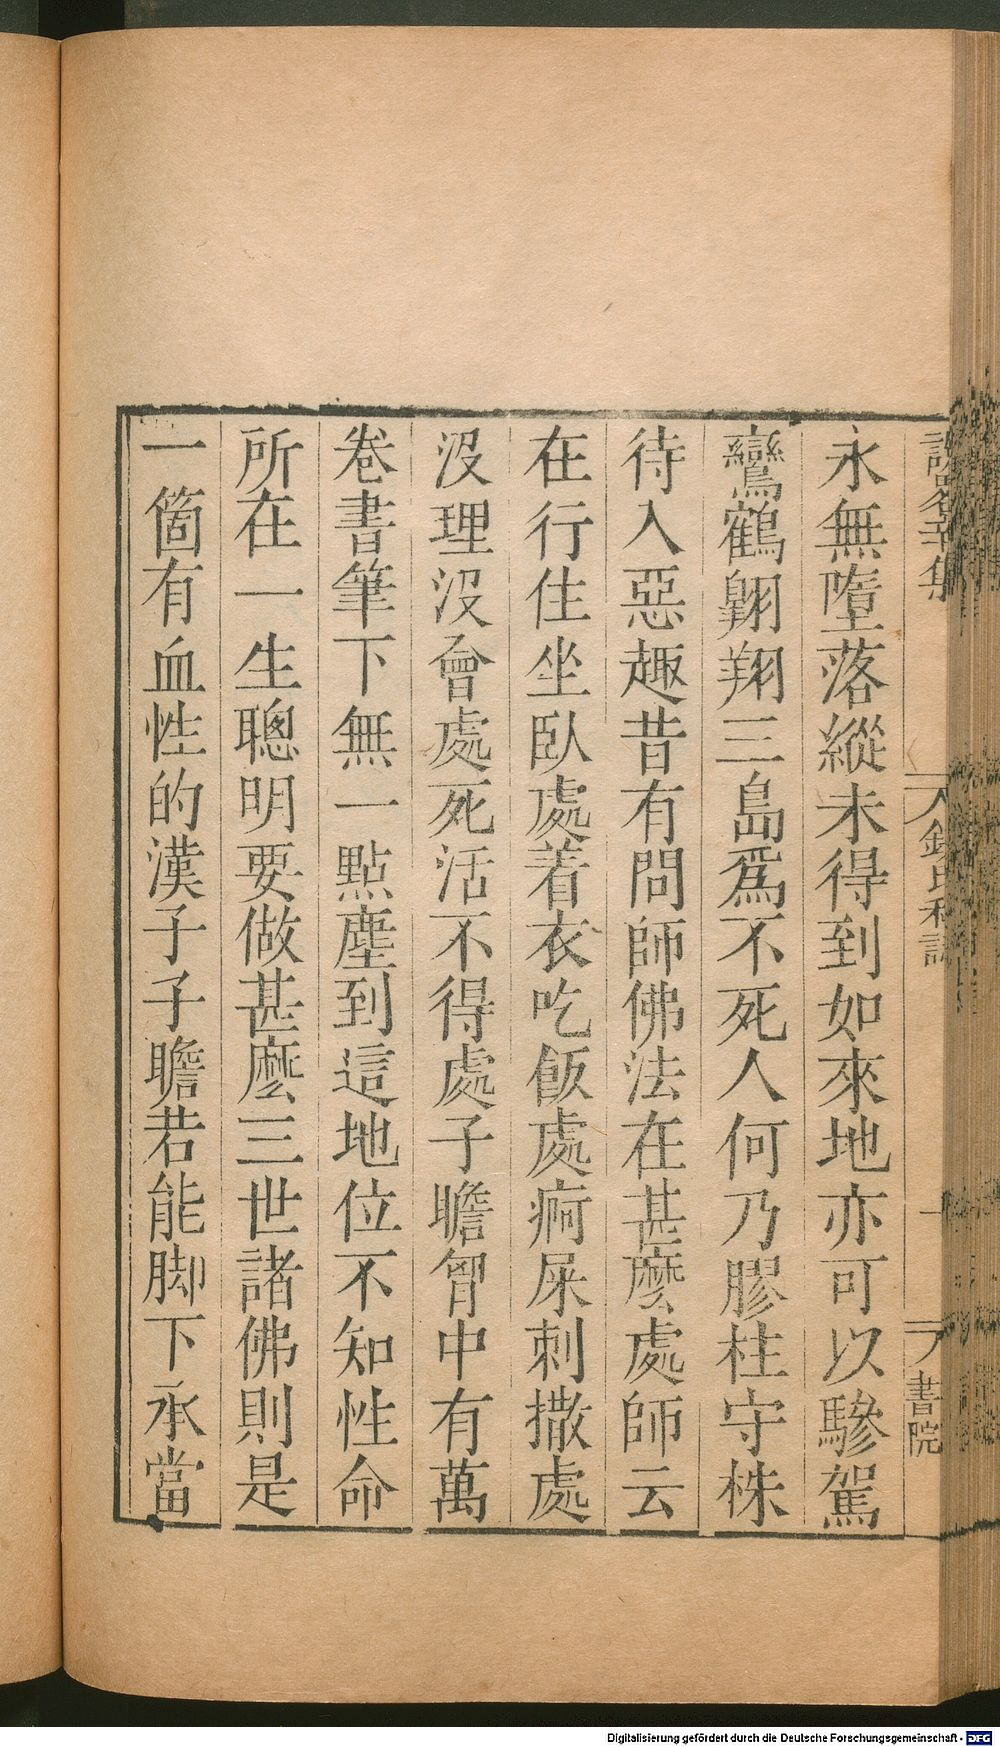 永無墮落縱未得到如來地亦可以驂駕
鸞鶴翺翔三島爲不死人何乃膠柱守株
待入惡趣昔有問師佛法在甚麼處師云
在行住坐臥處着衣吃飯處痾屎刺撒處
没理没會處死活不得處子瞻胷中有萬
卷書筆下無一點塵到這地位不知性命
所在一生聰明要做甚麼三世諸佛則是
一箇有血性的漢子子瞻若能脚下承當
書院
Digitalisierung gefördert durch die Deutsche Forschungsgemeinschaft - DFG